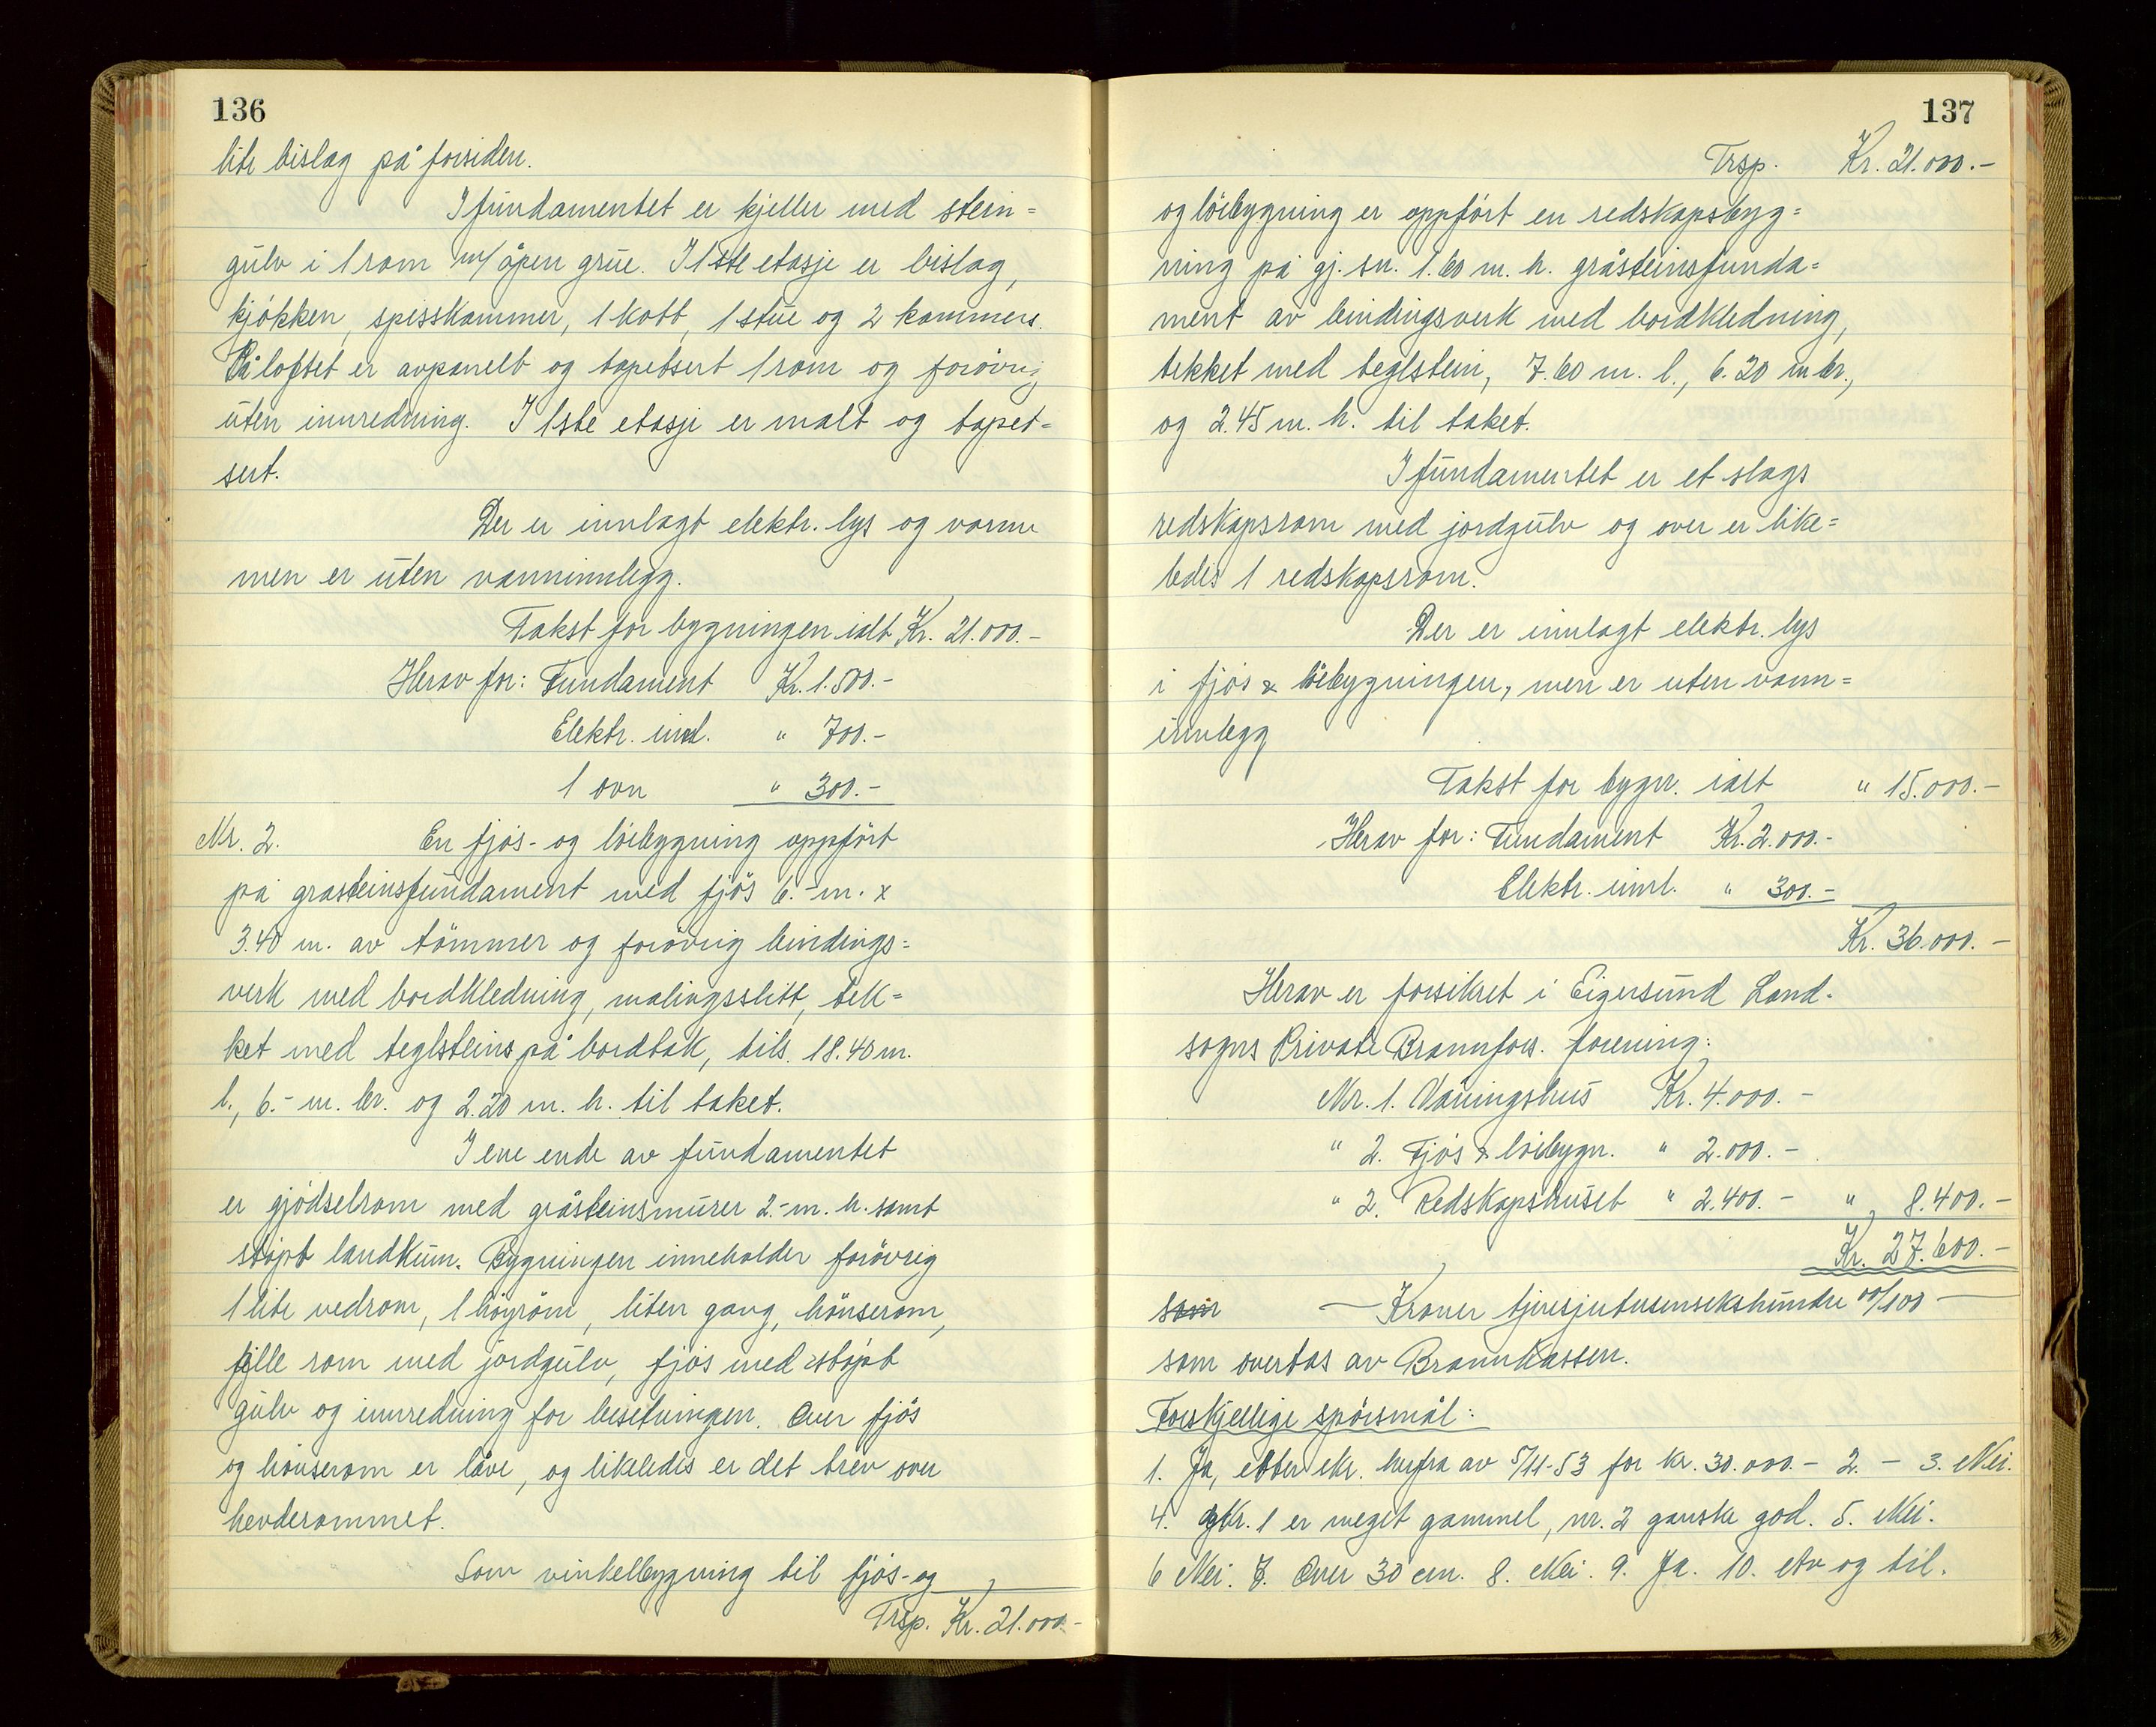 136
lite bislag på forsiden.
I fundamentet er kjeller med stein=
gulv i 1 rom m/ åpen grue. I 1ste etasje er bislag,
kjøkken, spisskammer, 1 kott, 1 stue og 2 kammers.
På loftet er avpanelt og tapetsert 1 rom og forøvrig
uten innredning. I 1ste etasje er malt og tapet=
sert.
Der er innlagt elektr. lys og varme
men er uten vanninnlegg.
Takst for bygningen ialt Kr. 21.000.-
Herav for: Fundament Kr. 1.500.-
Elektr. innl. " 700.-
1 ovn " 300.-
Nr. 2. En fjøs- og löebygning oppfört
på grasteinsfundament med fjös 6.- m. x
3.40 m. av tömmer og forövrig bindings=
verk med bordkledning, malingsslitt, tek=
ket med teglsteins på bordtak, tils. 18.40 m.
l., 6.- m. br. og 2.20 m. h. til taket.
I ene ende av fundamentet
er gjödselrom med gråsteinsmurer 2.- m. h. samt
støpt landkum. Bygningen inneholder forövrig
1 lite vedrom, 1 höyröm, liten gang, hönserom,
fille rom med jordgulv, fjös med støpt
gulv og innredning for besetningen. Over fjös
og hönserom er låve, og likeledes er det trev over
hevderommet.
Som vinkelbygning til fjös- og
Trsp. Kr. 21.000.-
137
Trsp. Kr. 21.000.-
og löebygning er oppfört en redskapsbyg=
ning på gj. sn. 1.60 m. h. gråsteinsfunda=
ment av bindingsverk med bordkledning,
tekket med teglstein, 7.60 m. l., 6.20 m br.,
og 2.45 m. h. til taket.
I fundamentet er et slags
redskapsrom med jordgulv og over er like=
ledes 1 redskapsrom.
Der er innlagt elektr. lys
i fjös & löebygningen, men er uten vann=
innlegg
Takst for bygn. ialt " 15.000.-
Herav for: Fundament Kr. 2.000.-
Elektr. innl. " 300.-
Kr. 36.000.-
Herav er forsikret i Eigersund Land-
sogns Private Brannfors. forening:
Nr. 1. Våningshus Kr. 4.000.-
" 2. Fjös & löebygn. " 2.000.-
" 2. Redskapshuset " 2.400.- " 8.400.-
Kr. 27.600.-
som — Kroner tjuesjutusensekshundre 00/100 —
som overtas av Brannkassen.
Forskjellige spörsmål:
1. Ja, etter skr. herfra av 5/11-53 for kr. 30.000.- 2. - 3. Nei.
4. Nr. 1 er meget gammel, nr. 2 ganske god. 5. Nei.
6 Nei. 7. Over 30 cm. 8. Nei. 9. Ja. 10. Av og til.